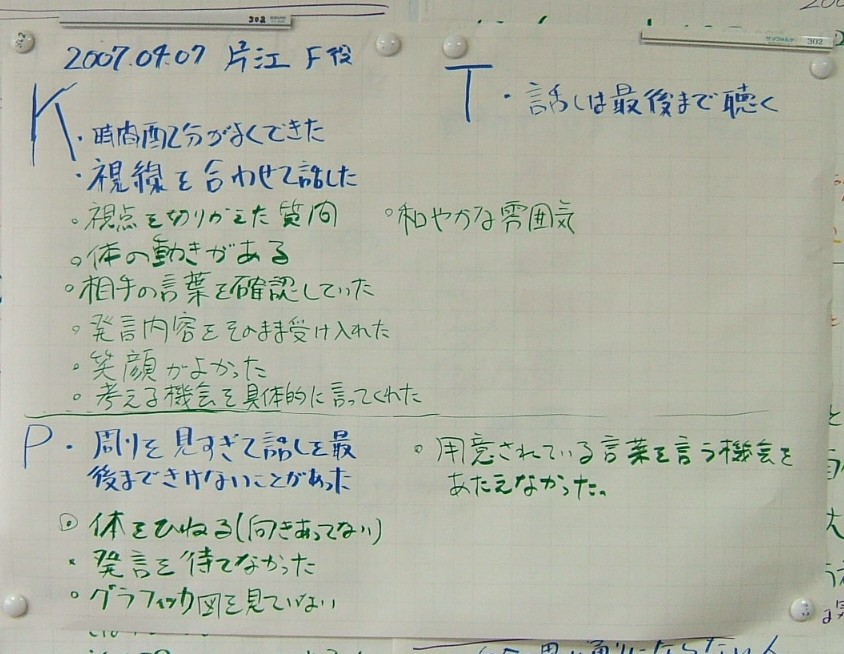 302
302
2007.09.07 片江 F役
K
・時間配分がよくできた
・視線を合わせて話した
○視点を切りかえた質問
○和やかな雰囲気
○体の動きがある
○相手の言葉を確認していた
○発言内容をそのまま受け入れた
○笑顔がよかった
○考える機会を具体的に言ってくれた
T
・話しは最後まで聴く
P
・周りを見すぎて話しを最
後まできけないことがあった
◎体をひねる(向きあってない)
×発言を待てなかった
○グラフィック図を見ていない
○用意されている言葉を言う機会を
あたえなかった。